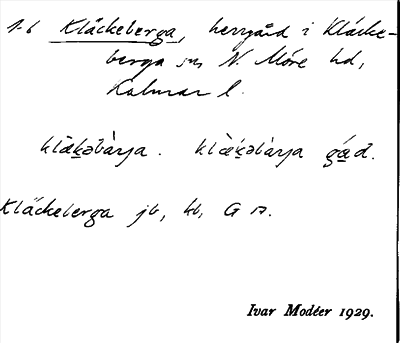 1-6 Kläckeberga, herrgård i Kläcke-
berga sn, N. Möre hd,
Kalmar l.
klä̀kəbàrja. klæ̀kəbàrja gɑ́d.
Kläckeberga jb, kb, G
Ivar Modéer 1929.